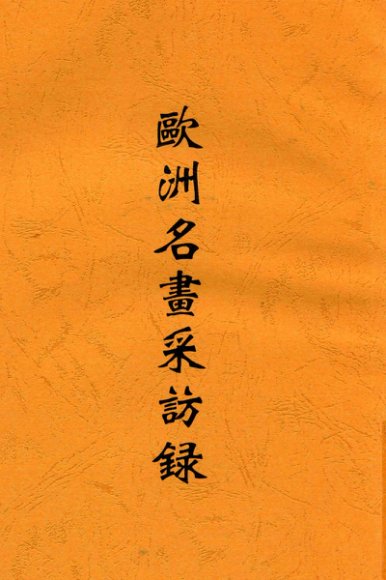 歐洲名畫采訪録